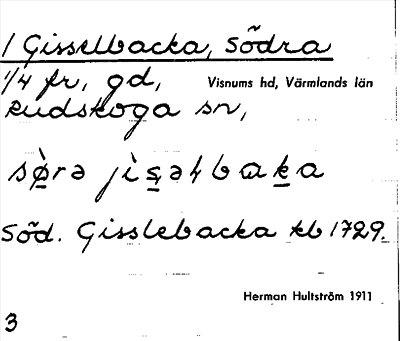 1 Gisselbacka, Södra
1/4 fr, gd, Visnums hd, Värmlands län
Rudskoga sn,
Söd. Gisslebacka kb 1729.
Herman Hultström 1911
3